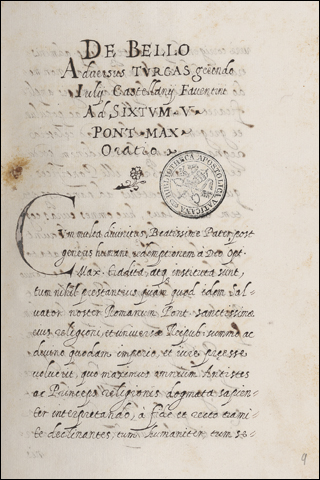 DE BELLO
Adversus TVRCAS gerendo
Iulij Castellanij Faventini
Ad SIXTVM V
PONT MAX
Oratio
BIBLIOTHECA APOSTOLICA VATICANA
Cum multa divinitus, Beatissime Pater, post
generis humani redemptionem a Deo Opt
Max tradita, atq instituta sint,
tum nihil prestantius quam quod idem Sal-
vator noster Romanum Pont sanctissimæ
eius religioni, et universæ Reipub summo ac
divino quodam imperio, et iure præesse
voluerit, quo maximus omnium Antistes
ac Princeps religionis dogmata sapien-
ter interpretando, a fide et recto trami-
te declinantes, tum humaniter, tum se-
9